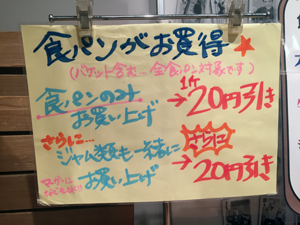 食パンがお買得
(バゲット含む… 全食パン対象です)
食パンのみ
お買い上げ
1斤
→20円引き
さらに…
ジャム類も一緒に
お買い上げ
さらに
→20円引き